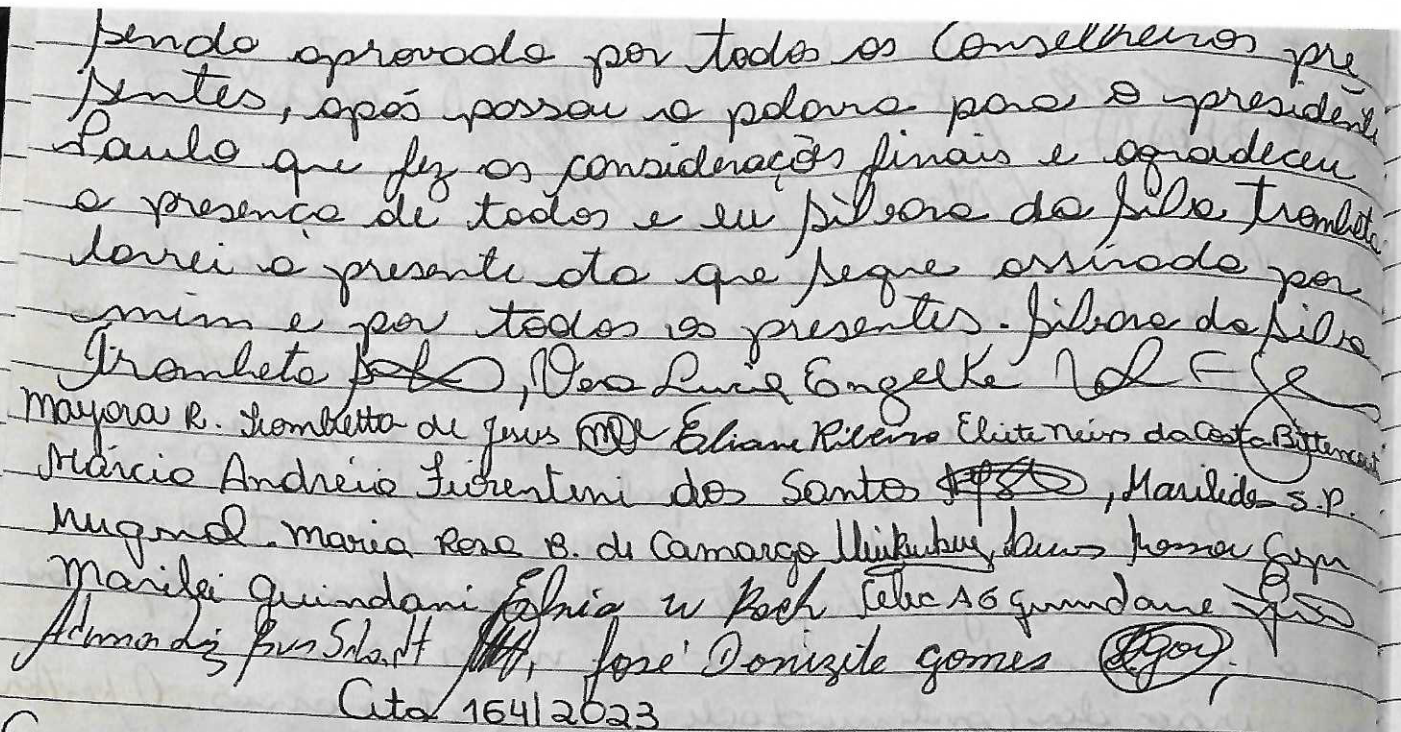 sendo aprovado por todos os Conselheiros pre
sentes, após passou a palavra para o presidente
Paulo que fez as considerações finais e agradeceu
a presença de todos e eu Silvana da Silva Trombeta
lavrei a presente ata que segue assinada por
mim e por todos os presentes. Silvana da Silva
Trombeta, Vera Lucia Engelke
Mayara R. Trombetta de Jesus Eliane Ribeiro Eliete Neiva da Costa Bittencourt
Márcio Andreia Fiorentini dos Santos, Marilide S.P.
Maria Rosa B. de Camargo
Marilei Guindani W Koch
José Donizite gomes
Ata 164/2023